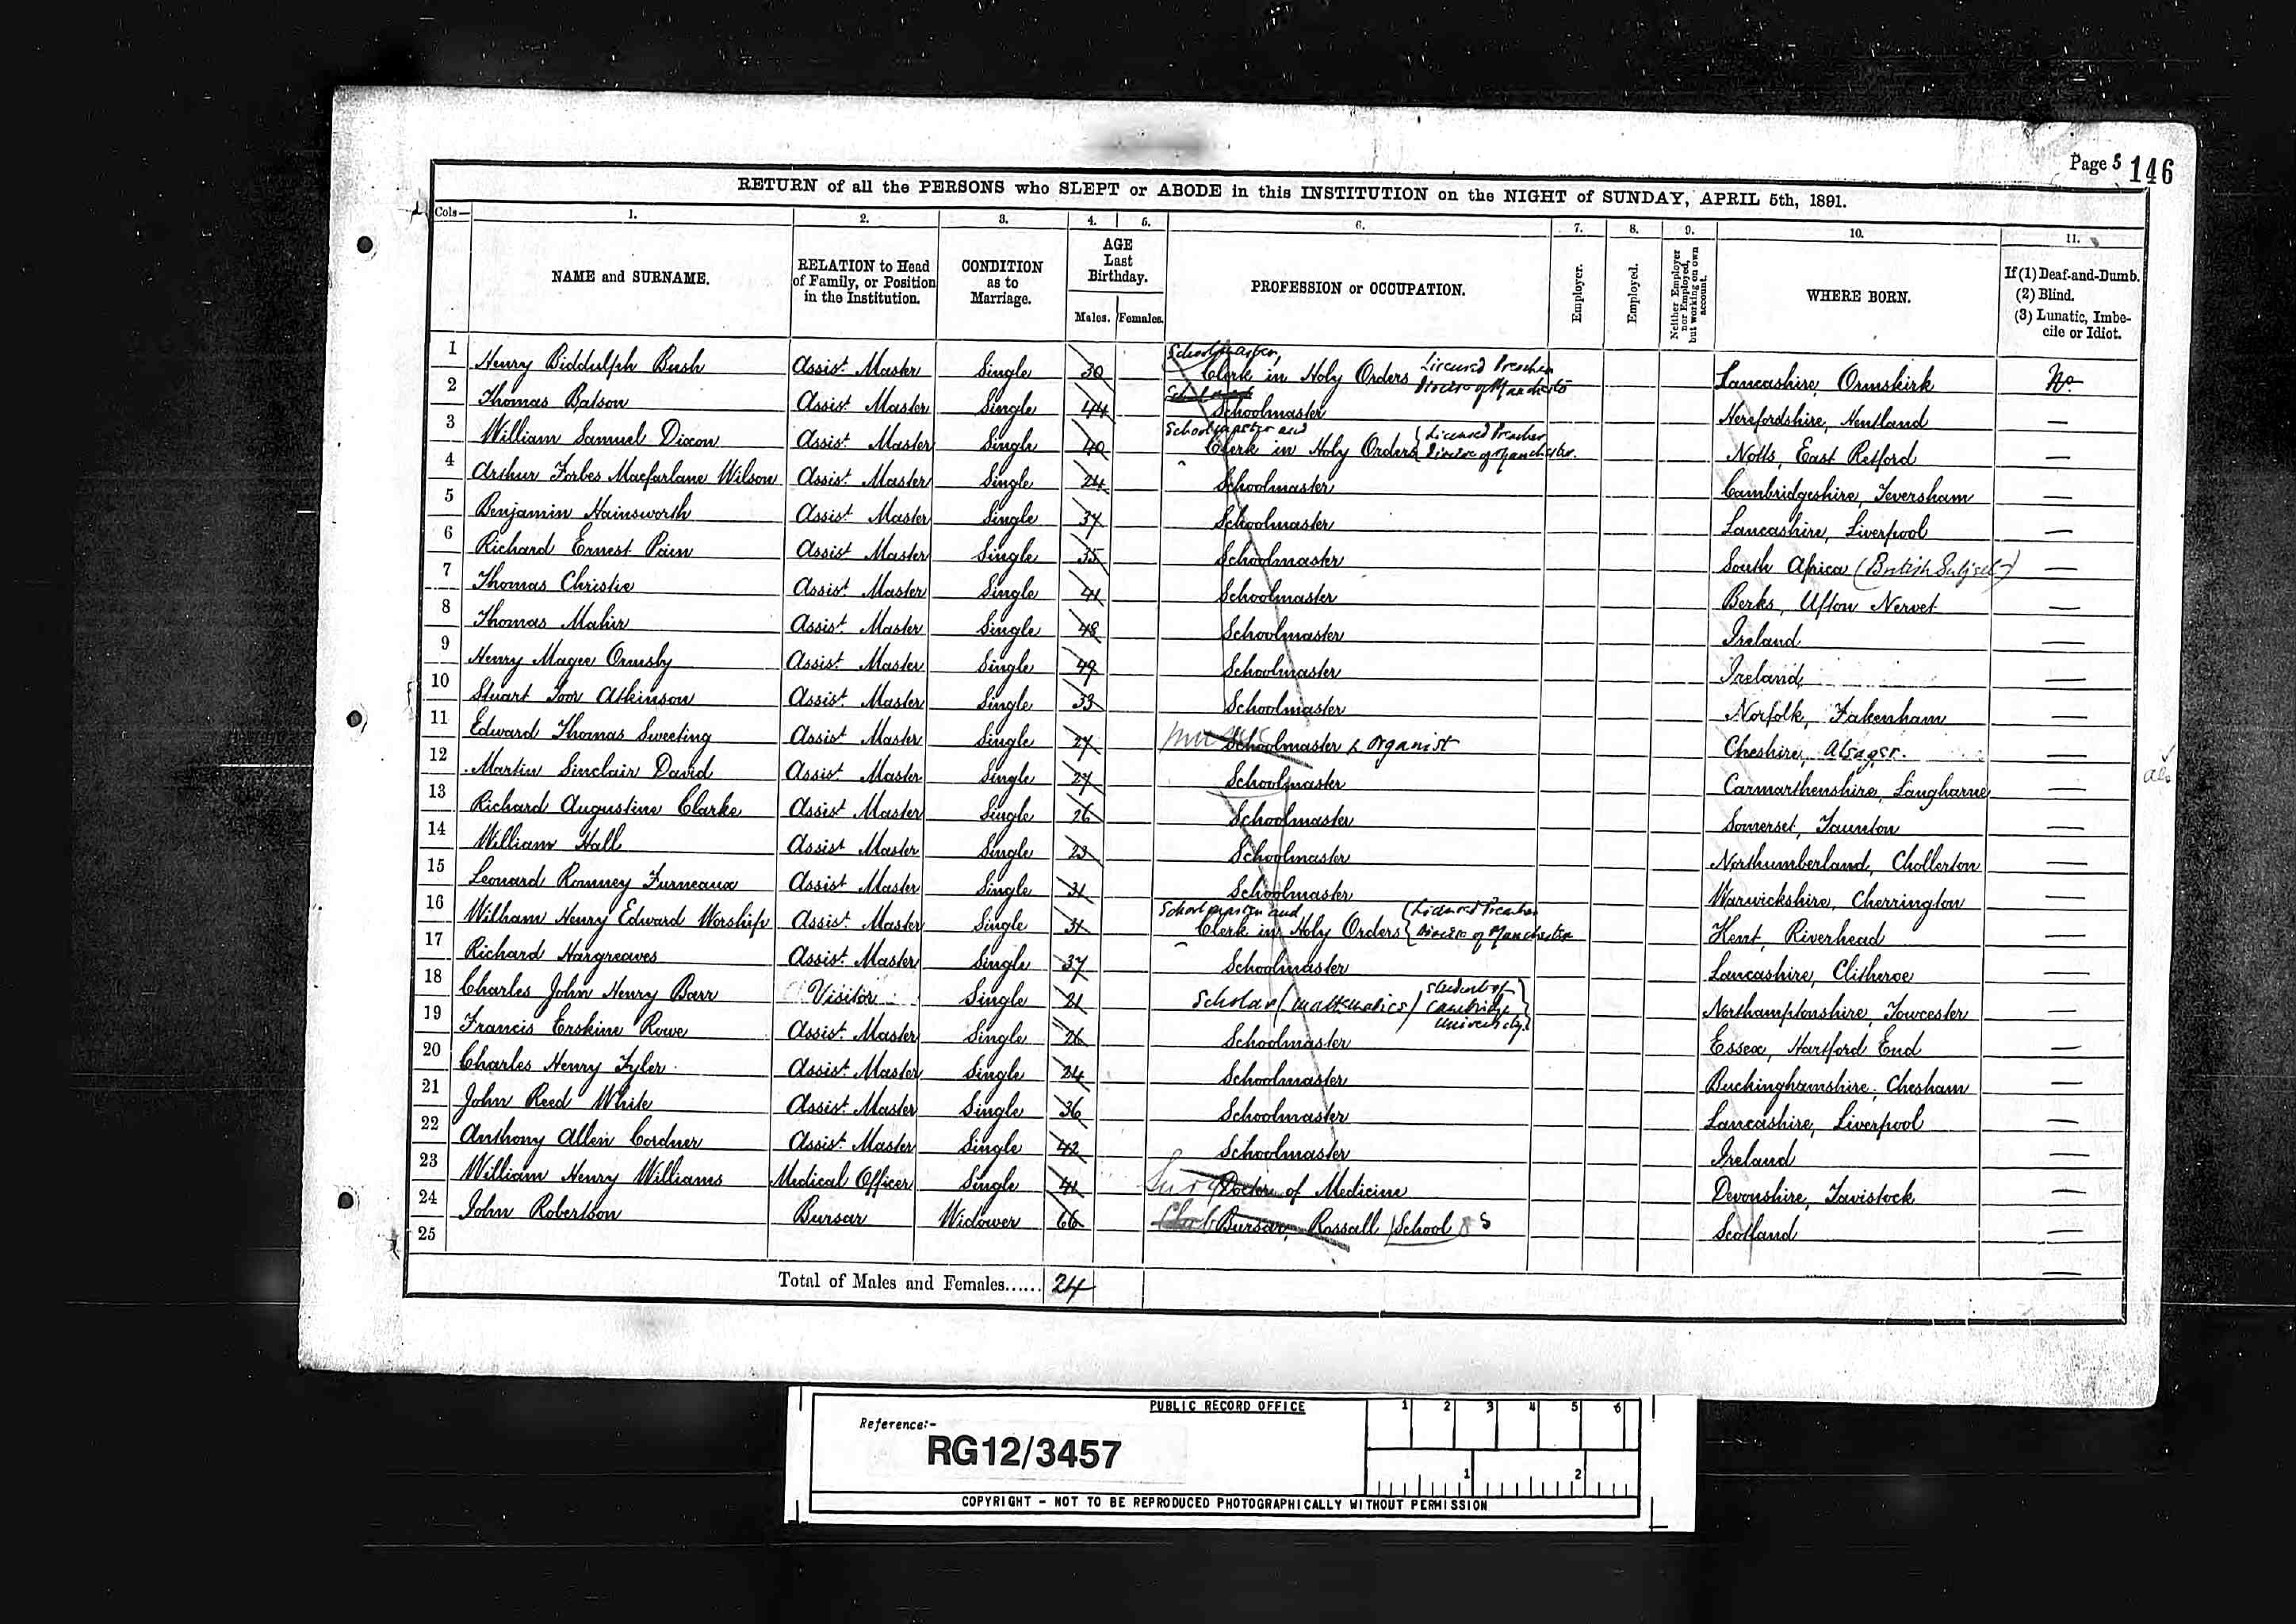 Page 5 146
RETURN of all the PERSONS who SLEPT or ABODE in this INSTITUTION on the NIGHT of SUNDAY, APRIL 5th, 1891.
Cols— 1. 2. 3. 4. 5. 6. 7. 8. 9. 10. 11.
NAME and SURNAME.
RELATION to Head of Family, or Position in the Institution.
CONDITION as to Marriage.
AGE Last Birthday.
Males. Females.
PROFESSION or OCCUPATION.
Employer.
Employed.
Neither Employer nor Employed, but working on own account.
WHERE BORN.
If (1) Deaf-and-Dumb.
(2) Blind.
(3) Lunatic, Imbecile or Idiot.
1 Henry Biddulph Bush Assist. Master Single 30 Schoolmaster, Clerk in Holy Orders Licensed Preacher Diocese of Manchester Lancashire, Ormskirk No.
2 Thomas Batson Assist. Master Single 44 Schoolmaster Herefordshire, Hentland —
3 William Samuel Dixon Assist. Master Single 40 Schoolmaster and Clerk in Holy Orders { Licensed Preacher Diocese of Manchester. Notts, East Retford —
4 Arthur Forbes Macfarlane Wilson Assist. Master Single 24 Schoolmaster Cambridgeshire, Teversham —
5 Benjamin Hainsworth Assist. Master Single 37 Schoolmaster Lancashire, Liverpool —
6 Richard Ernest Pain Assist. Master Single 35 Schoolmaster South Africa (British Subject) —
7 Thomas Christie Assist. Master Single 41 Schoolmaster Berks, Ufton Nervet —
8 Thomas Mahir Assist. Master Single 48 Schoolmaster Ireland —
9 Henry Magee Ormsby Assist. Master Single 49 Schoolmaster Ireland, —
10 Stuart Atkinson Assist. Master Single 33 Schoolmaster Norfolk, Fakenham —
11 Edward Thomas Sweeting Assist. Master Single 27 Schoolmaster & Organist Cheshire, Alsager. —
12 Martin Sinclair David Assist. Master Single 27 Schoolmaster Carmarthenshire, Laugharne —
13 Richard Augustine Clarke Assist. Master Single 26 Schoolmaster Somerset, Taunton —
14 William Hall Assist. Master Single 23 Schoolmaster Northumberland, Chollerton —
15 Leonard Romney Furneaux Assist. Master Single 31 Schoolmaster Warwickshire, Cherrington —
16 William Henry Edward Worship Assist. Master Single 31 Schoolmaster and Clerk in Holy Orders { Licensed Preacher Diocese of Manchester Kent, Riverhead —
17 Richard Hargreaves Assist. Master Single 37 Schoolmaster Lancashire, Clitheroe —
18 Charles John Henry Barr Visitor Single 21 Scholar (Mathematics) Student of Cambridge University } Northamptonshire, Towcester —
19 Francis Erskine Rowe Assist. Master Single 26 Schoolmaster Essex, Hartford End —
20 Charles Henry Tyler Assist. Master Single 24 Schoolmaster Buckinghamshire, Chesham —
21 John Reed White Assist. Master Single 36 Schoolmaster Lancashire, Liverpool —
22 Anthony Allen Cordner Assist. Master Single 42 Schoolmaster Ireland —
23 William Henry Williams Medical Officer Single 41 Doctor of Medicine Devonshire, Tavistock —
24 John Robertson Bursar Widower 66 Bursar, Rossall School Scotland —
25 —
Total of Males and Females...... 24
PUBLIC RECORD OFFICE
Reference:-
RG12/3457
1 2 3 4 5 6
1 2
COPYRIGHT - NOT TO BE REPRODUCED PHOTOGRAPHICALLY WITHOUT PERMISSION